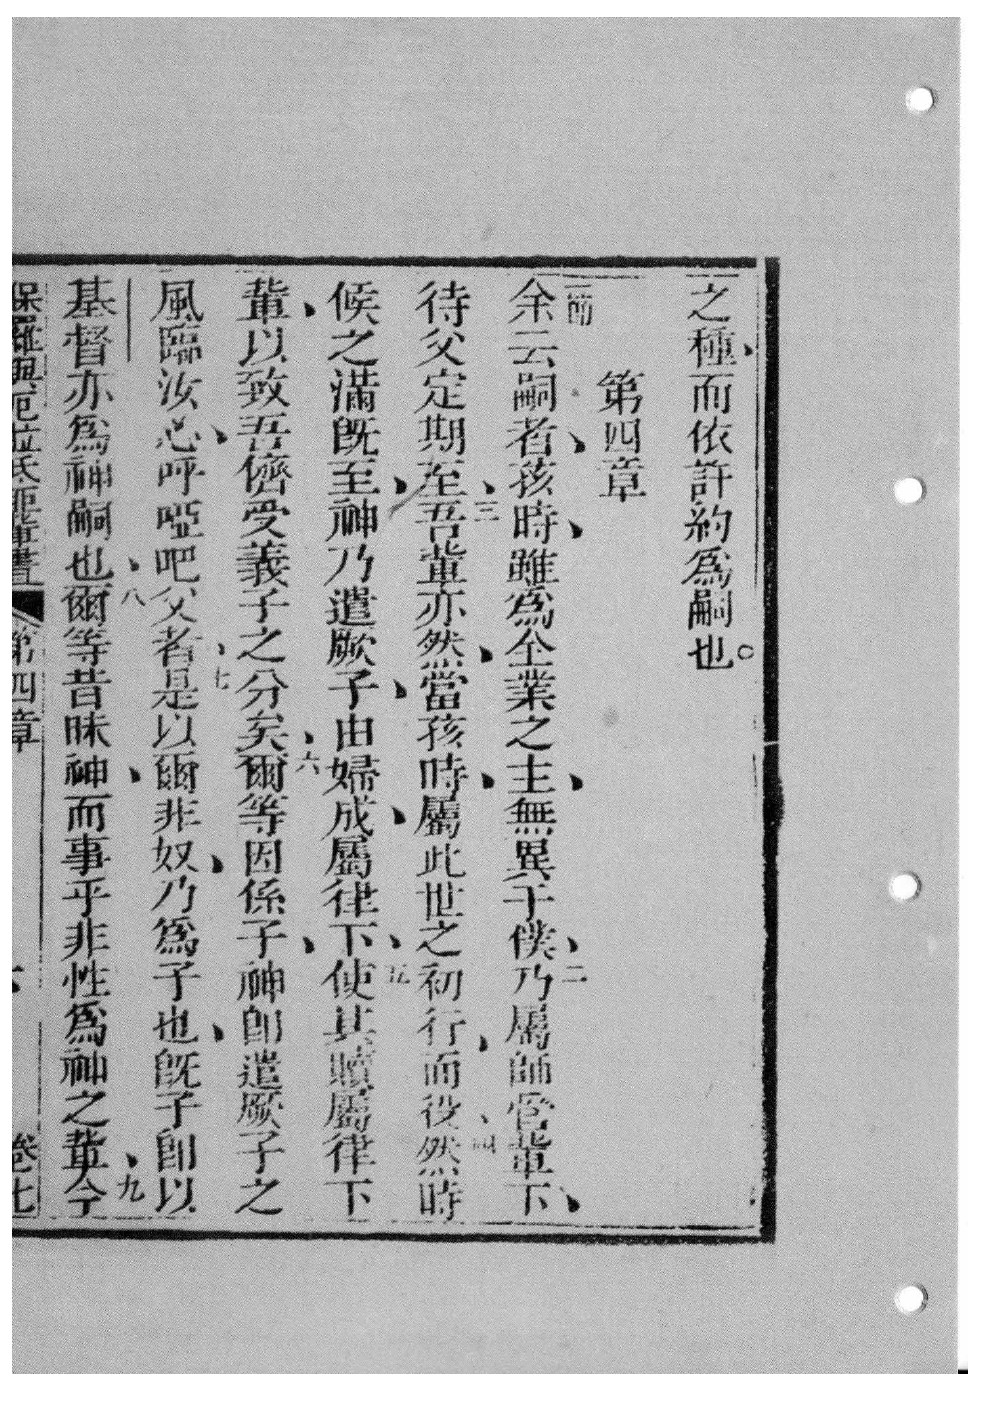 之種、而依許約為嗣也。
第四章
一節余云嗣者、孩時、雖為仝業之主、無異于僕、二乃屬師管輩下、
待父定期至、三吾輩亦然、當孩時、屬此世之初行、而役、四然時
候之滿既至、神乃遣厥子、由婦成、屬律下、五使其贖屬律下
輩、以致吾儕受義子之分矣、六爾等因係子、神即遣厥子之
風臨汝心、呼啞吧父者、七是以爾非奴、乃為子也、既子即以
基督亦為神嗣也、八爾等昔昧神、而事乎非性為神之輩、九今
保羅與厄拉氐亞輩書 第四章 卷七